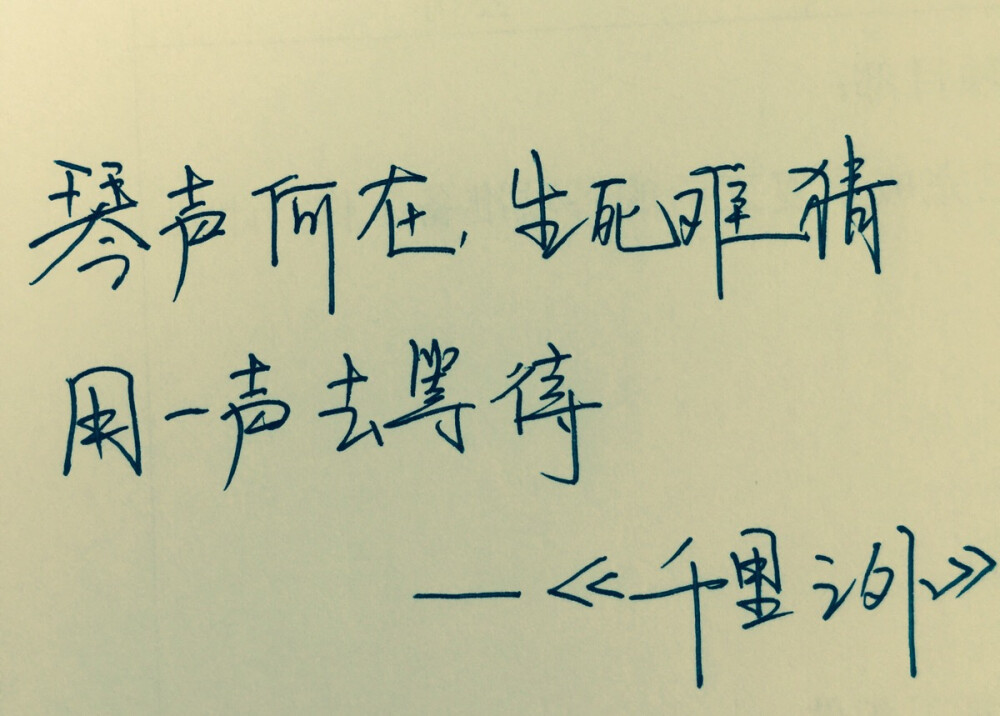 琴声何在,生死难猜
用一声去等待
—《千里之外》